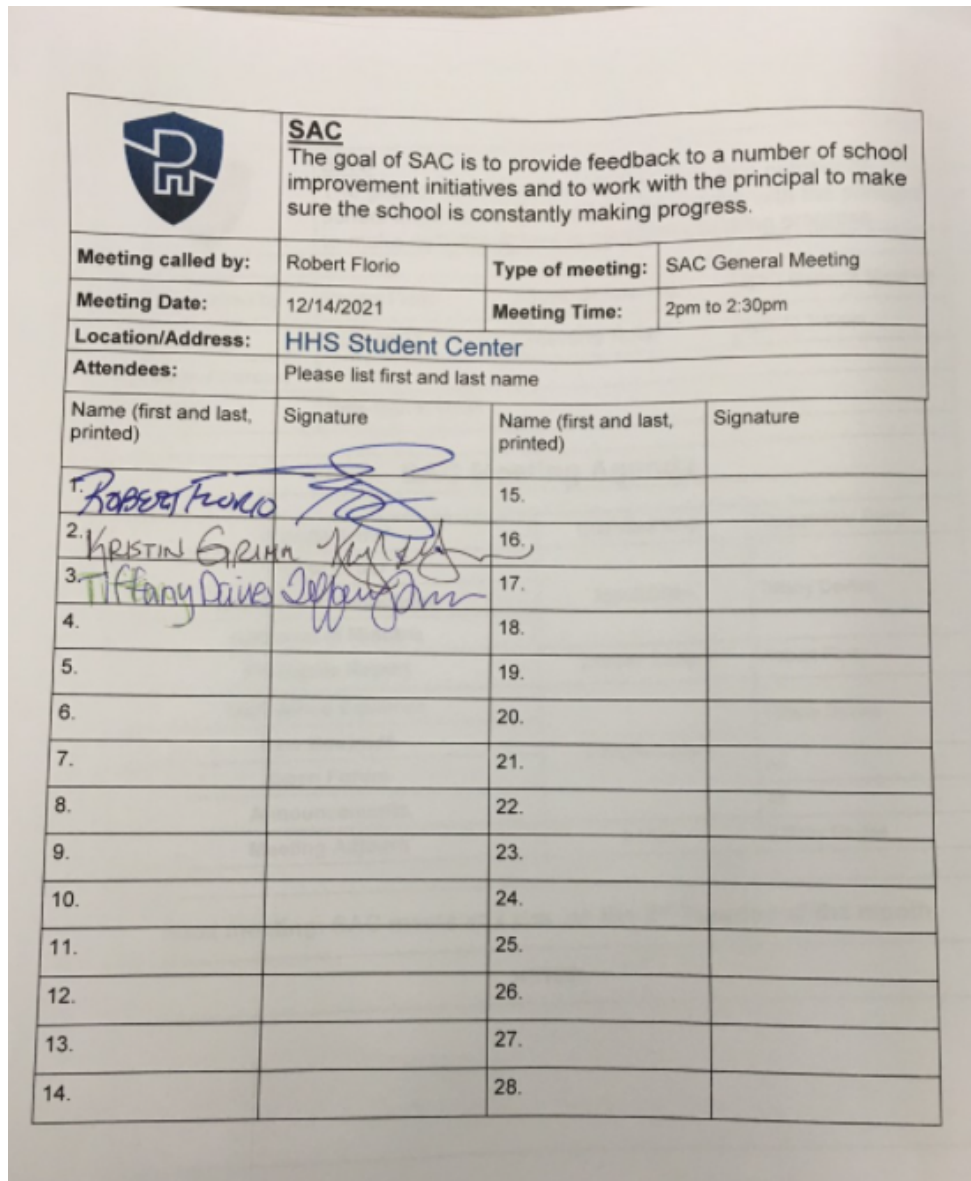 SAC
The goal of SAC is to provide feedback to a number of school
improvement initiatives and to work with the principal to make
sure the school is constantly making progress.
Meeting called by: Robert Florio Type of meeting: SAC General Meeting
Meeting Date: 12/14/2021 Meeting Time: 2pm to 2:30pm
Location/Address: HHS Student Center
Attendees: Please list first and last name
Name (first and last, Signature Name (first and last, Signature
printed) printed)
1. ROBERT FLORIO 15.
2. KRISTIN 16.
3. Tiffany 17.
4. 18.
5. 19.
6. 20.
7. 21.
8. 22.
9. 23.
10. 24.
11. 25.
12. 26.
13. 27.
14. 28.